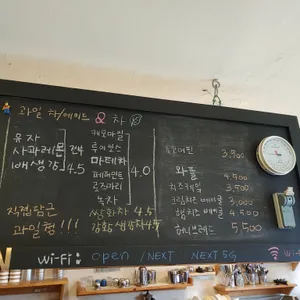 과일 차/에이드 & 차
유자
사과레몬
배생강
4.5
직접담근
과일청!!!
캐모마일
루이보스
마테차
페퍼민트
로즈마리
녹차
4.0
쌍화차 4.5
감잎생강차 4.5
3,900
와플 4,500
치즈케익 3,500
크림치즈 베이글 4,000
햄치즈 베이글 4,500
허니브레드 5,500
Wi-Fi: open / NEXT / NEXT 5G